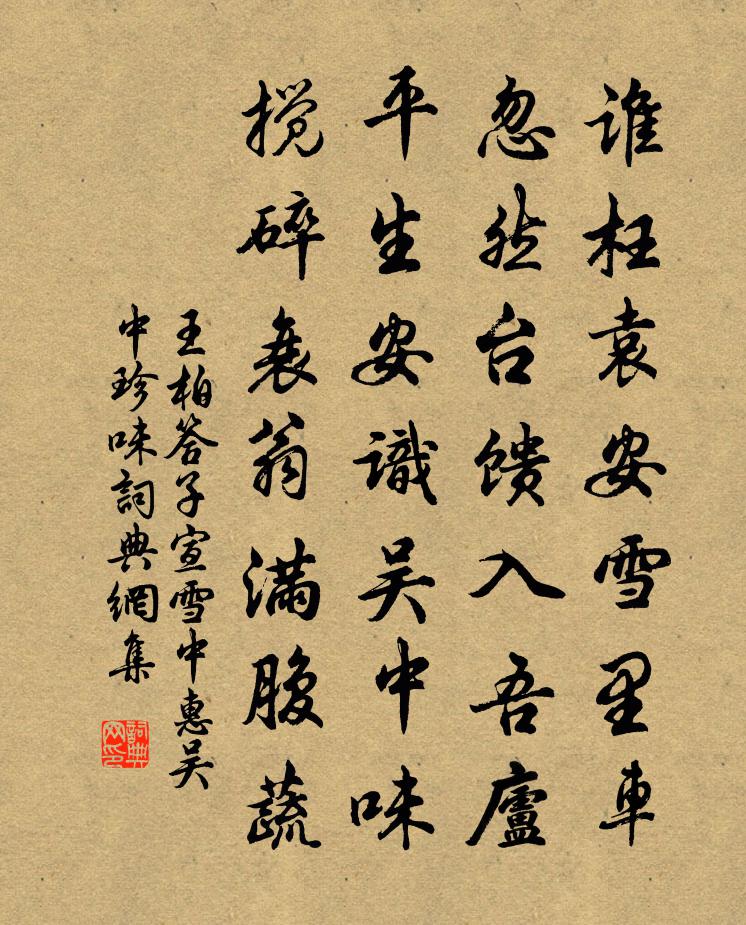 谁枉袁安雪里車
忽然台馈入吾廬
平生安識吴中味
搅碎衰翁满腹蔬
王柏答子宣雪中惠吴
中珍味詞典網集
詞典
网印